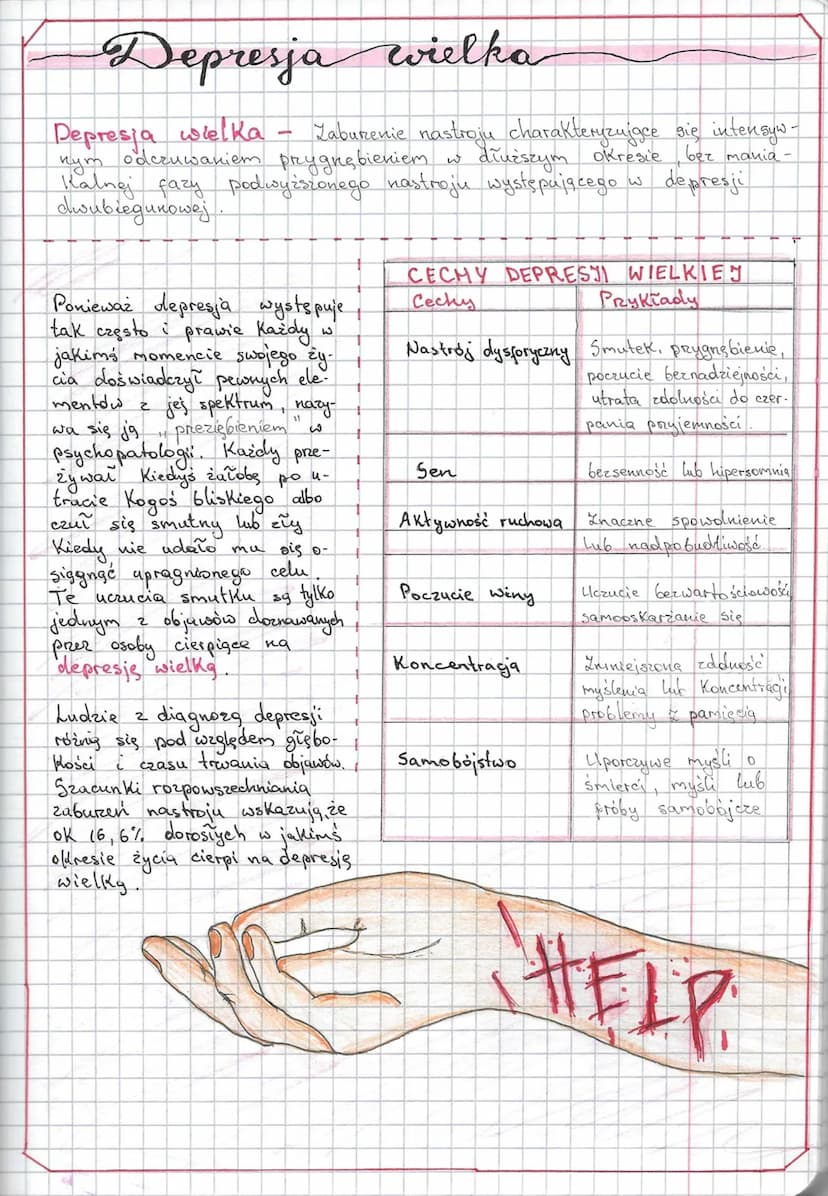 Depresja wielka
Depresja wielka – Zaburzenie nastroju charakteryzujące się intensyw-
nym odczuwaniem przygnębieniem w dłuższym okresie, bez mania-
kalnej fazy podwyższonego nastroju występującego w depresji
dwubiegunowej.
Ponieważ depresja występuje
tak często i prawie każdy w
jakimś momencie swojego ży-
cia doświadczył pewnych ele-
mentów z jej spektrum, nazy-
wa się ją „przeziębieniem" w
psychopatologii. Każdy prze-
żywał kiedyś żałobę po u-
tracie kogoś bliskiego albo
czuł się smutny lub zły
kiedy nie udało mu się o-
siągnąć upragnionego celu.
Te uczucia smutku są tylko
jednym z objawów doznawanych
przez osoby cierpiące na
depresję wielką.
Ludzie z diagnozą depresji
różnią się pod względem głębo-
kości i czasu trwania objawów.
Szacunki rozpowszechniania
zaburzeń nastroju wskazują, że
ok 16,6% dorosłych w jakimś
okresie życia cierpi na depresję
wielką.
CECHY DEPRESJI WIELKIEJ
Cechy Przykłady
Nastrój dysforyczny Smutek, przygnębienie,
poczucie beznadziejności,
utrata zdolności do czer-
pania przyjemności.
Sen bezsenność lub hipersomnia
Aktywność ruchowa Znaczne spowolnienie
lub nadpobudliwość
Poczucie winy Uczucie bezwartościowości
samooskarżanie się
Koncentracja Zmniejszona zdolność
myślenia lub koncentracji
problemy z pamięcią
Samobójstwo Uporczywe myśli o
śmierci, myśli lub
próby samobójcze
HELP